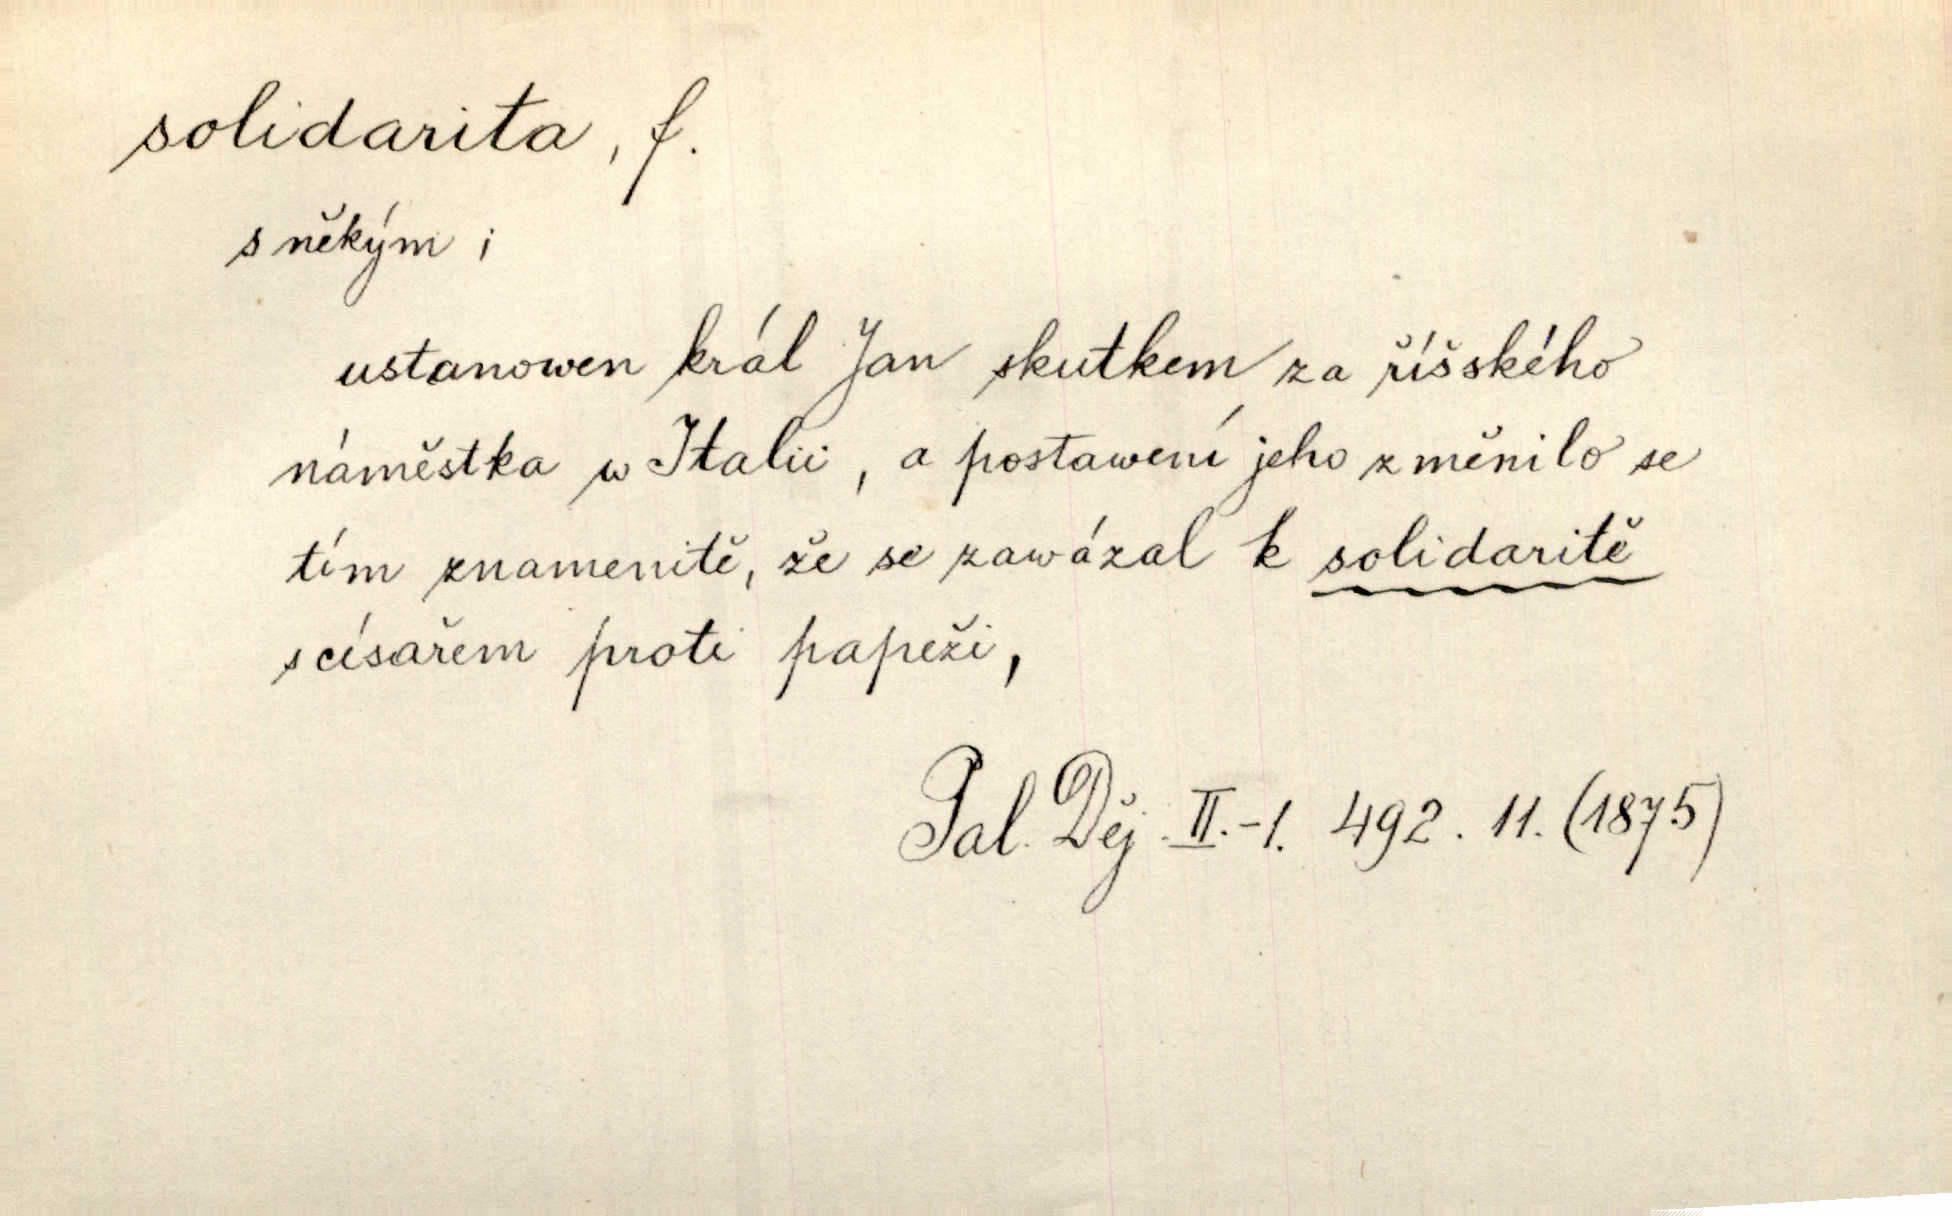 solidarita, f.
s někým ;
ustanowen král Jan skutkem za říšského
náměstka w Italii, a postawení jeho změnilo se
tím znamenitě, že se zawázal k solidaritě
s císařem proti papeži,
Pal. Děj. II.-1. 492. 11. (1875)